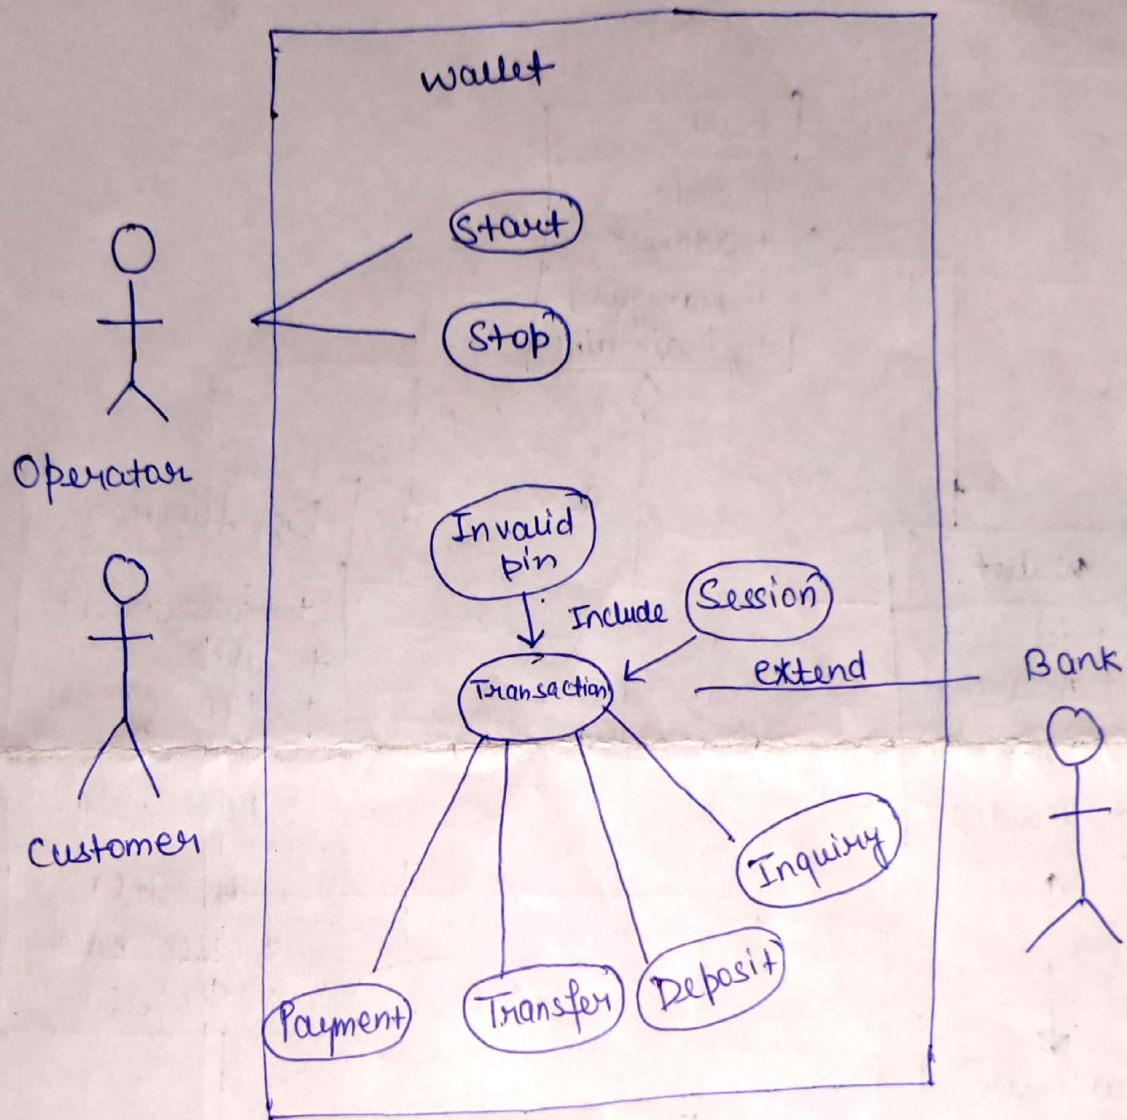 Wallet
Start
Stop
Operatar
Invalid
pin
Include
Session
Transaction
extend
Bank
Customer
Inquiry
Payment
Transfer
Deposit